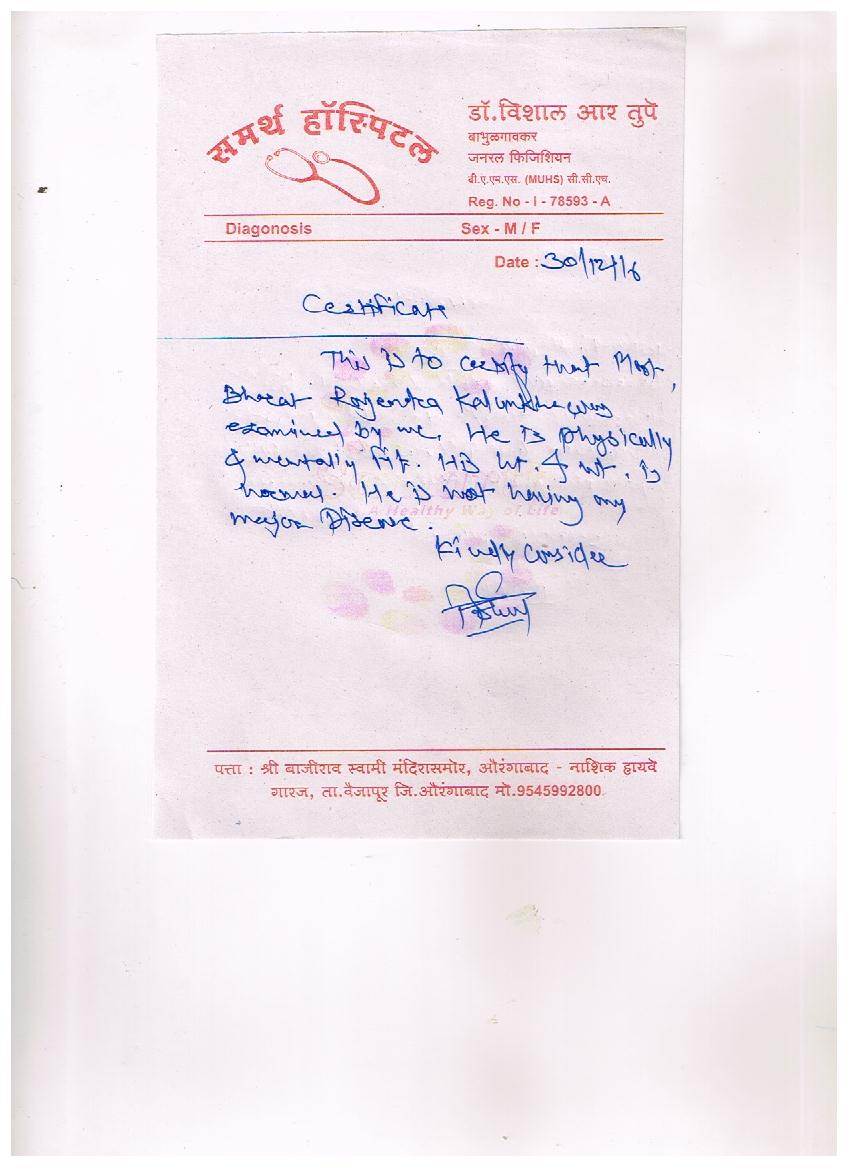 समर्थ हॉस्पिटल
डॉ.विशाल आर तुपे
बाभुळगावकर
जनरल फिजिशियन
बी.ए.एम.एस. (MUHS) सी.सी.एच.
Reg. No - I - 78593 - A
Diagonosis Sex - M / F
Date : 30/12/16
Certificate
This is to certify that Mast,
Bharat Rajendra Kalunkhe was
examined by me. He is physically
& mentally fit. His ht. & wt. is
normal. He is not having any
major Disease.
A Healthy Way of Life
Kindly consider
पत्ता : श्री बाजीराव स्वामी मंदिरासमोर, औरंगाबाद - नाशिक हायवे
गारज, ता.वैजापूर जि.औरंगाबाद मो.9545992800